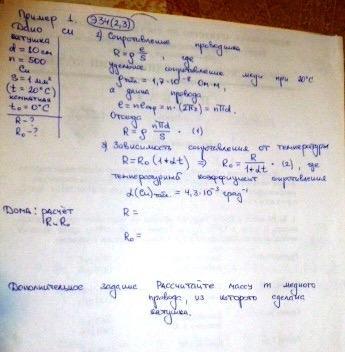 Пример 1. Э34(2,3)
Дано СИ
катушка
d = 10 см
n = 500
Cu
S = 1 мм²
(t = 20°C)
комнатная
t₀ = 0°C
R - ?
R₀ - ?
1) Сопротивление проводника
R = ρ l/S, где
удельное сопротивление меди при 20°C
ρтабл. = 1,7·10⁻⁸ Ом·м,
а длина провода
l = n lокр = n·(2πr) = nπd.
Отсюда
R = ρ nπd/S · (1)
2) Зависимость сопротивления от температуры
R = R₀(1+αt) ⇒ R₀ = R/(1+αt) · (2), где
температурный коэффициент сопротивления
α(Cu)табл. = 4,3·10⁻³ град⁻¹
Дома: расчёт
R и R₀
R =
R₀ =
Дополнительное задание Рассчитайте массу m медного
провода, из которого сделана
катушка.